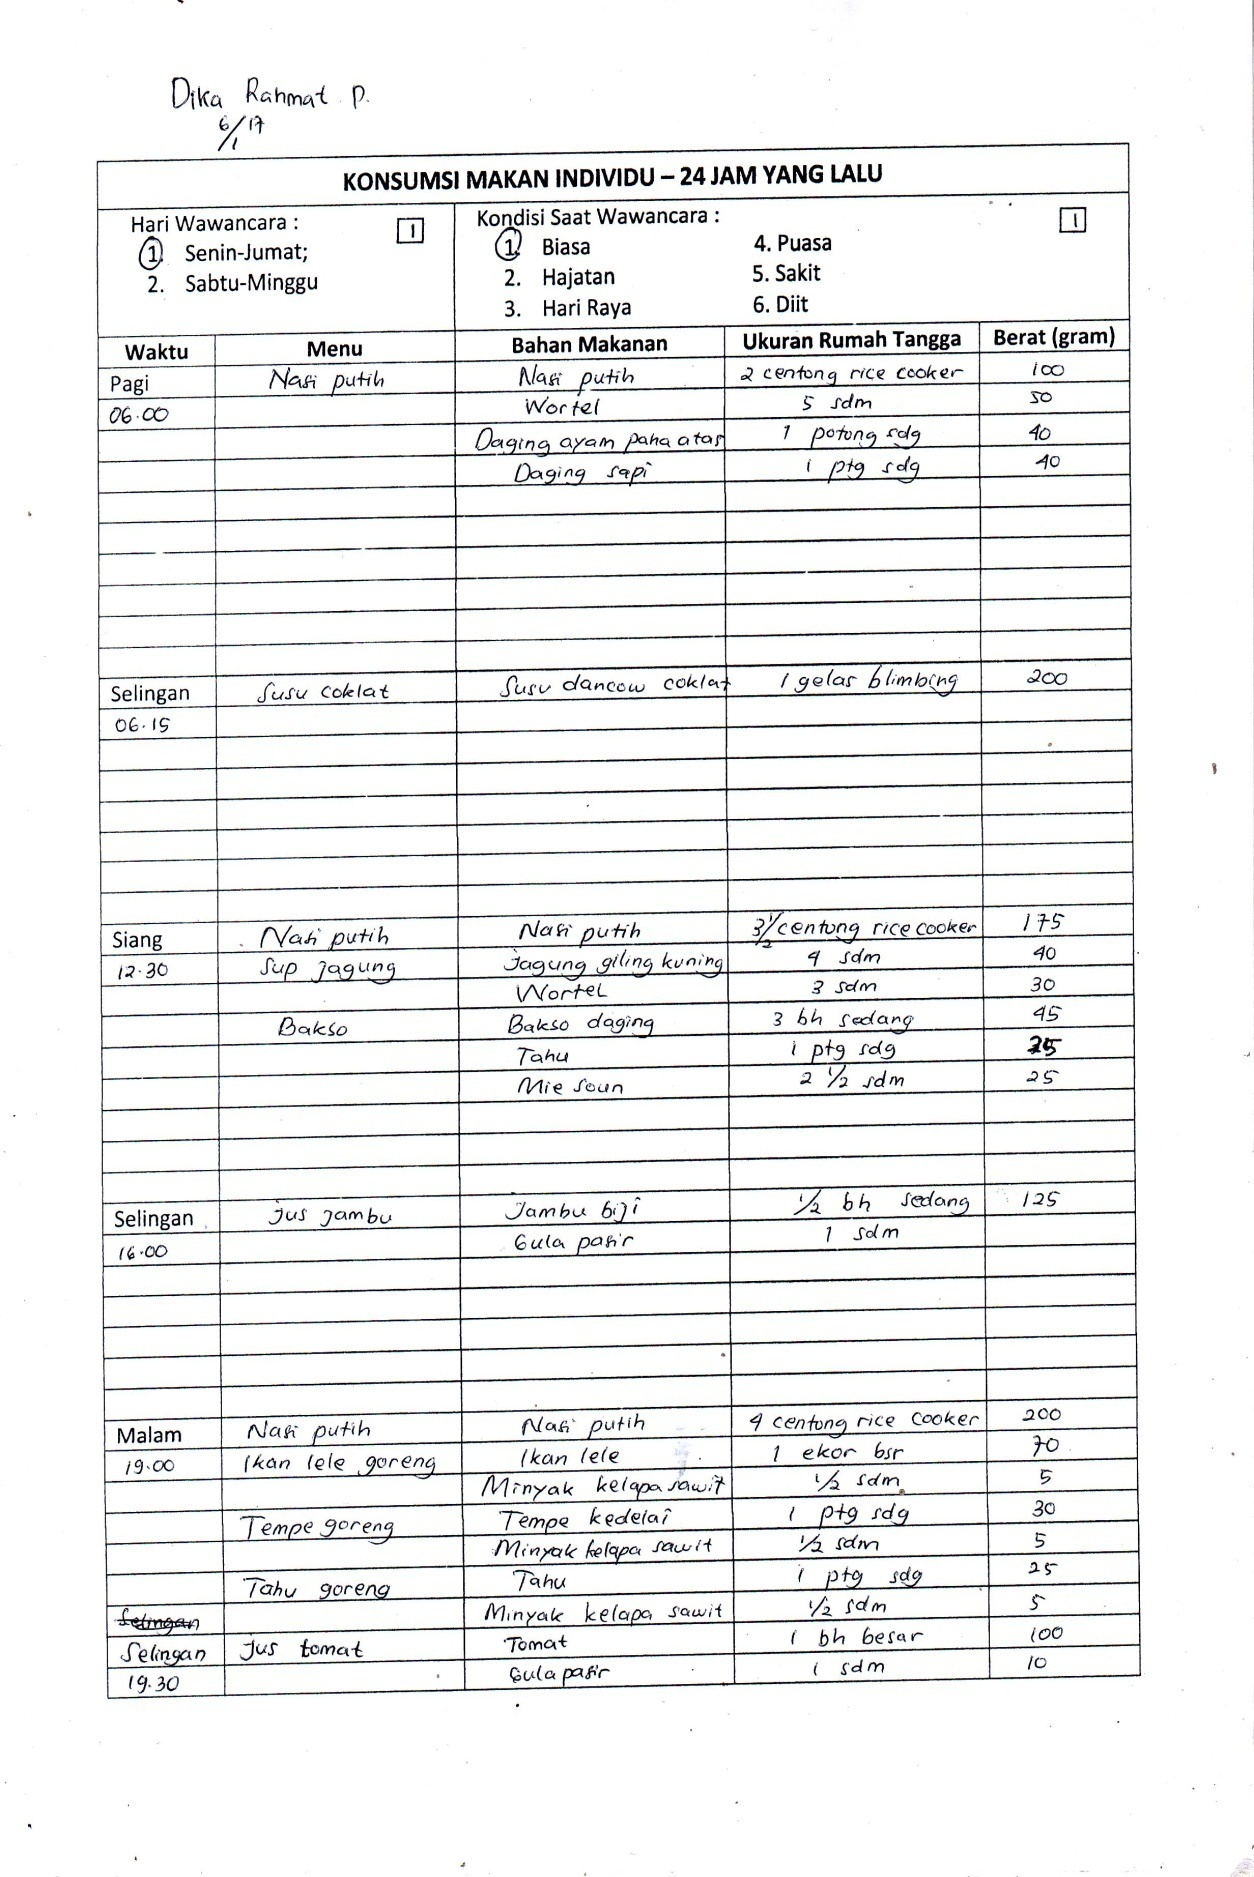 Dika Rahmat P.
6/1 17
KONSUMSI MAKAN INDIVIDU – 24 JAM YANG LALU
Hari Wawancara : 1
1. Senin-Jumat;
2. Sabtu-Minggu
Kondisi Saat Wawancara : 1
1. Biasa 4. Puasa
2. Hajatan 5. Sakit
3. Hari Raya 6. Diit
Waktu Menu Bahan Makanan Ukuran Rumah Tangga Berat (gram)
Pagi Nasi putih Nasi putih 2 centong rice cooker 100
06.00 Wortel 5 sdm 50
Daging ayam paha atas 1 potong sdg 40
Daging sapi 1 ptg sdg 40
Selingan Susu coklat Susu dancow coklat 1 gelas blimbing 200
06.15
Siang Nasi putih Nasi putih 3 1/2 centong rice cooker 175
12.30 Sup jagung Jagung giling kuning 4 sdm 40
Wortel 3 sdm 30
Bakso Bakso daging 3 bh sedang 45
Tahu 1 ptg sdg 25
Mie soun 2 1/2 sdm 25
Selingan Jus jambu Jambu biji 1/2 bh sedang 125
16.00 Gula pasir 1 sdm
Malam Nasi putih Nasi putih 4 centong rice cooker 200
19.00 Ikan lele goreng Ikan lele 1 ekor bsr 70
Minyak kelapa sawit 1/2 sdm 5
Tempe goreng Tempe kedelai 1 ptg sdg 30
Minyak kelapa sawit 1/2 sdm 5
Tahu goreng Tahu 1 ptg sdg 25
Selingan Minyak kelapa sawit 1/2 sdm 5
Selingan Jus tomat Tomat 1 bh besar 100
19.30 Gula pasir 1 sdm 10